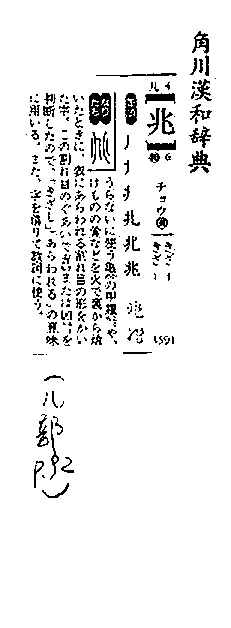 角川漢和辞典
儿 4
兆
6
チョウ
きざ-し
きざ-す
1591
ノ 丿 兆 兆 兆
なりたち
うらないに使う亀の甲羅や、
けものの骨などを火で裏から焼
いたときに、表にあらわれる割れ目の形をかい
た字。この割れ目のぐあいで吉または凶を
判断したので、「きざし」「あらわれる」の意味
に用いる。また、字を借りて数詞に使う。
(儿部 P.92)